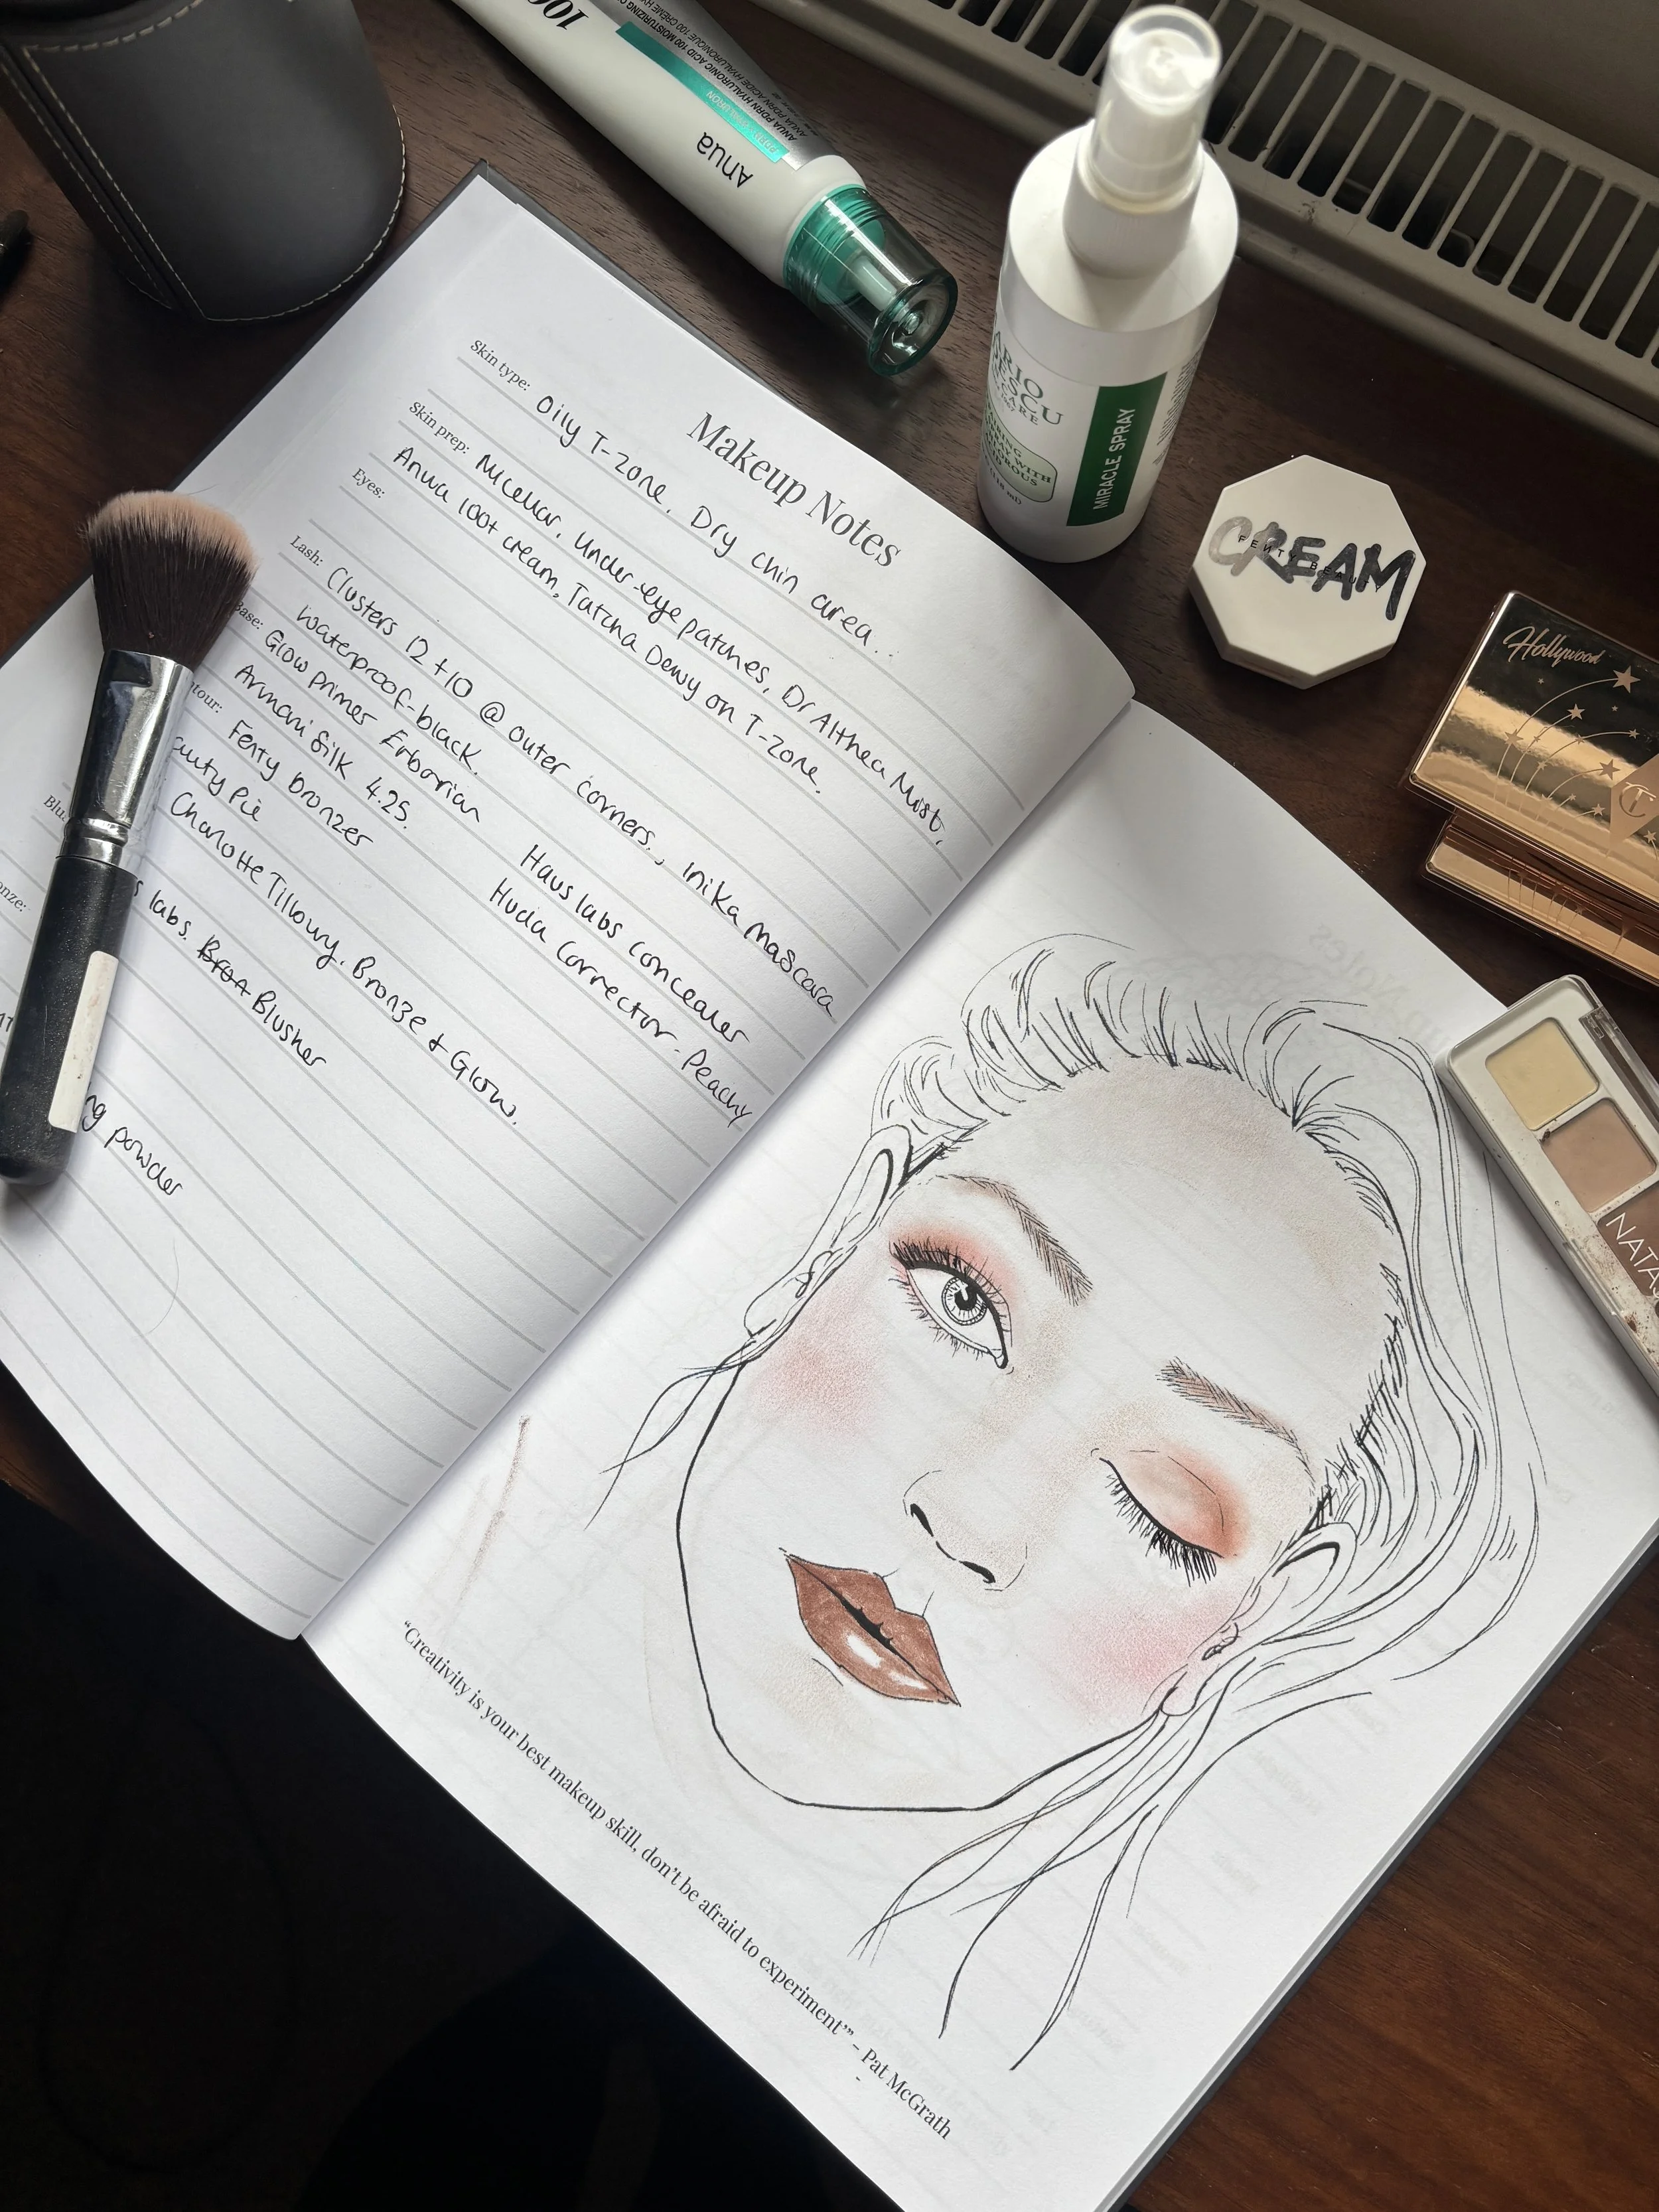 Makeup Notes
Skin type: Oily T-zone, Dry chin area..
Skin prep: Micellar, Under-eye patches, Dr Althea Mist,
Anua 100+ cream, Tatcha Dewy on T-zone.
Eyes:
Lash: Clusters 12 + 10 @ outer corners., inika mascara
waterproof-black.
Base: Glow primer Erborian Haus labs concealer
Armani Silk 4.25. Huda Corrector - Peachy
tour: Fenty bronzer
auty Pie
Blu
Charlotte Tilbury. Bronze + Glow.
onze:
s labs. Blusher
ng powder
"Creativity is your best makeup skill, don't be afraid to experiment"" - Pat McGrath
100
ANUA PDRN HYALURONIC ACID 100 MOISTURIZING
Anua
ARIO
CARE
MIRACLE SPRAY
CREAM
FENTY BEAUTY
Hollywood
NATAS